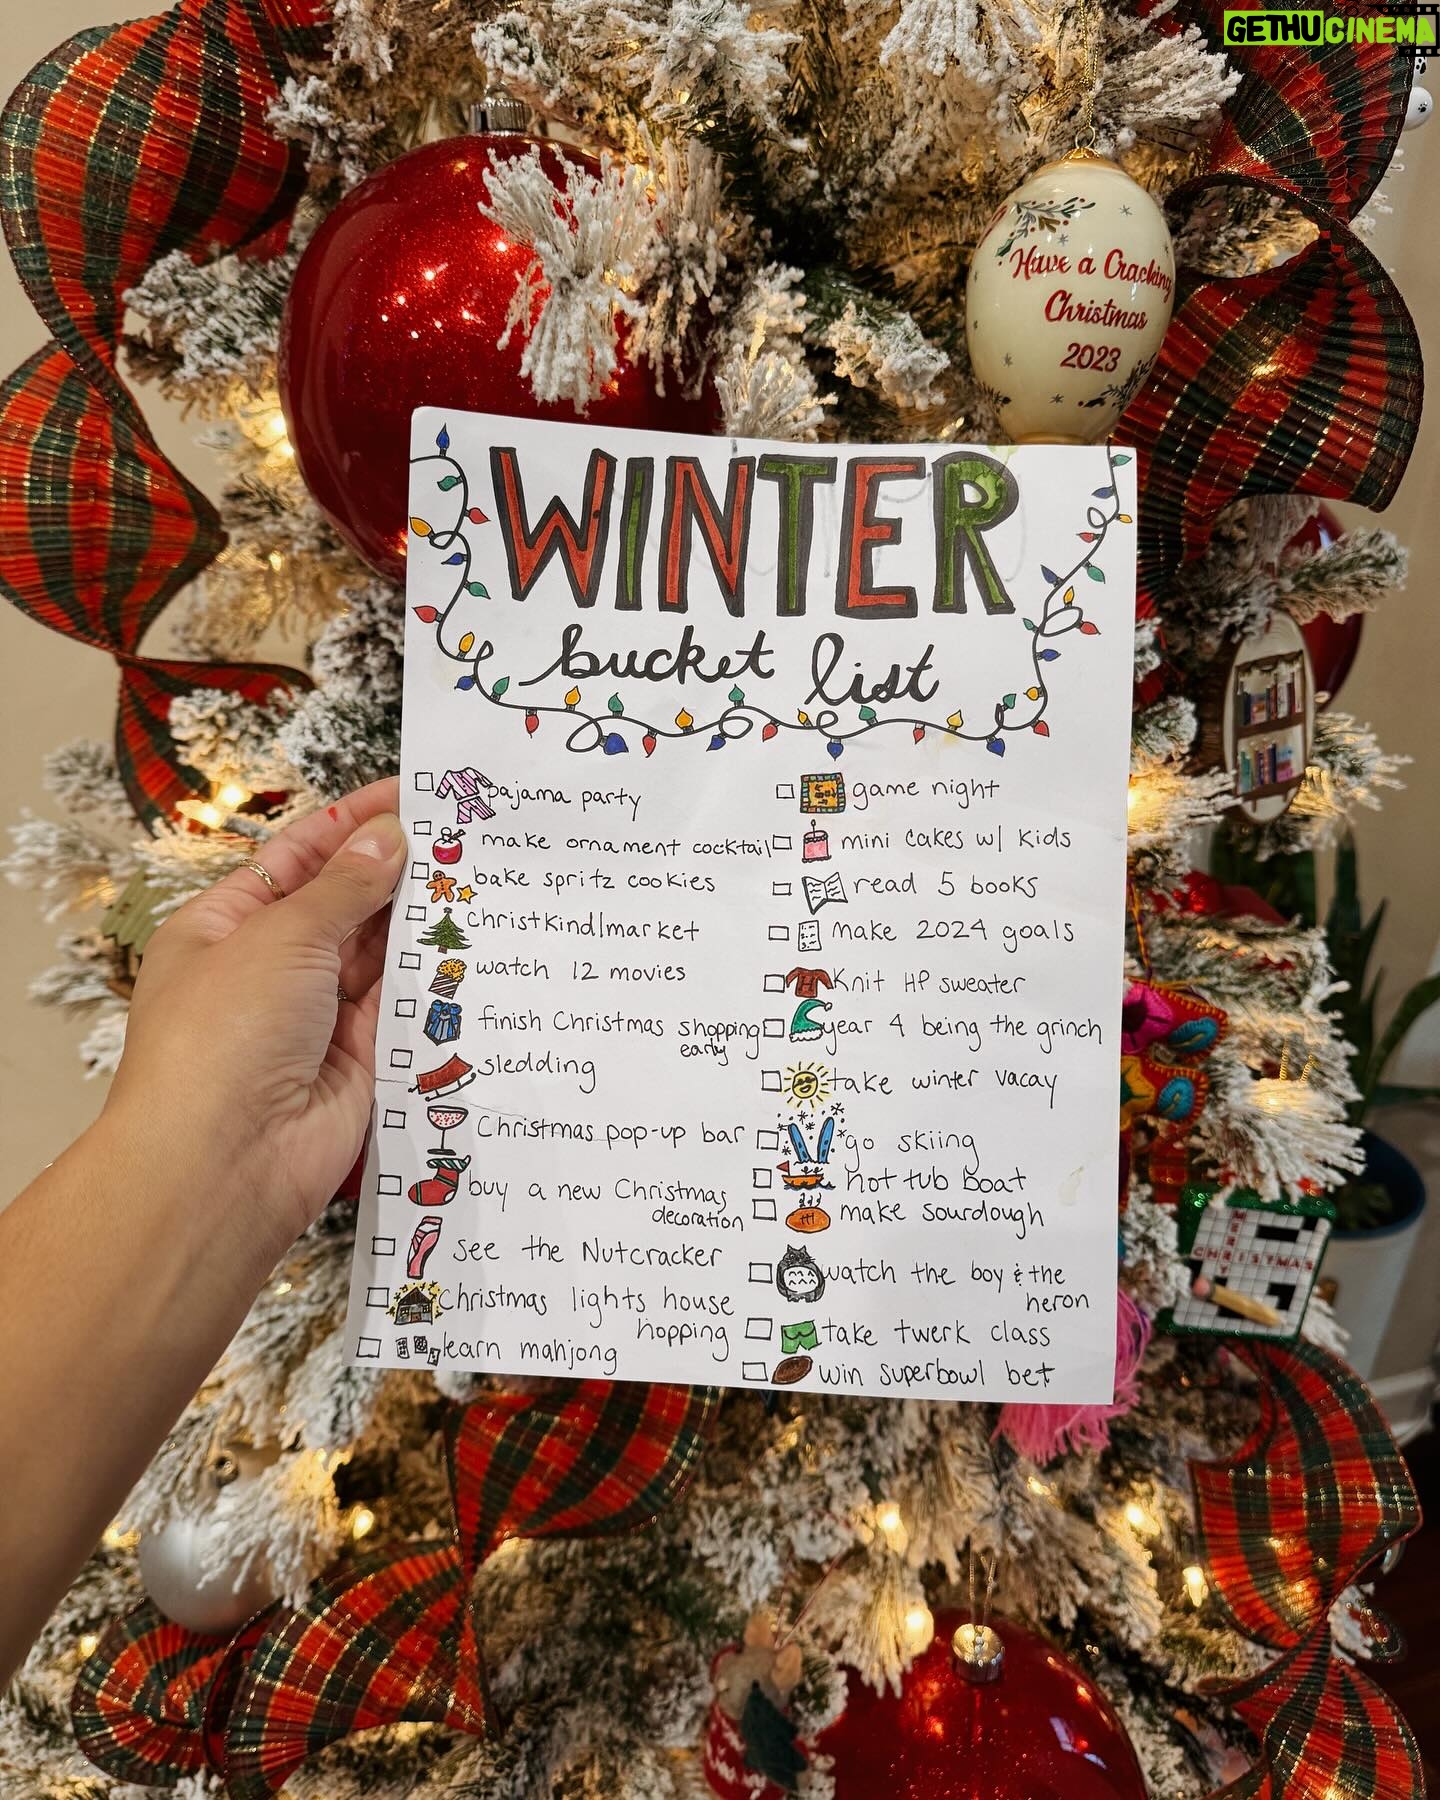 GETHUCINEMA
Have a Cracking
Christmas
2023
WINTER
bucket list
pajama party
make ornament cocktail
bake spritz cookies
christkindlmarket
watch 12 movies
finish Christmas shopping
early
sledding
Christmas pop-up bar
buy a new Christmas
decoration
see the Nutcracker
Christmas lights house
hopping
learn mahjong
game night
mini cakes w/ kids
read 5 books
make 2024 goals
Knit HP sweater
H
year 4 being the grinch
take winter vacay
go skiing
hot tub boat
make sourdough
watch the boy & the
heron
take twerk class
win superbowl bet
MERRY
CHRISTMAS